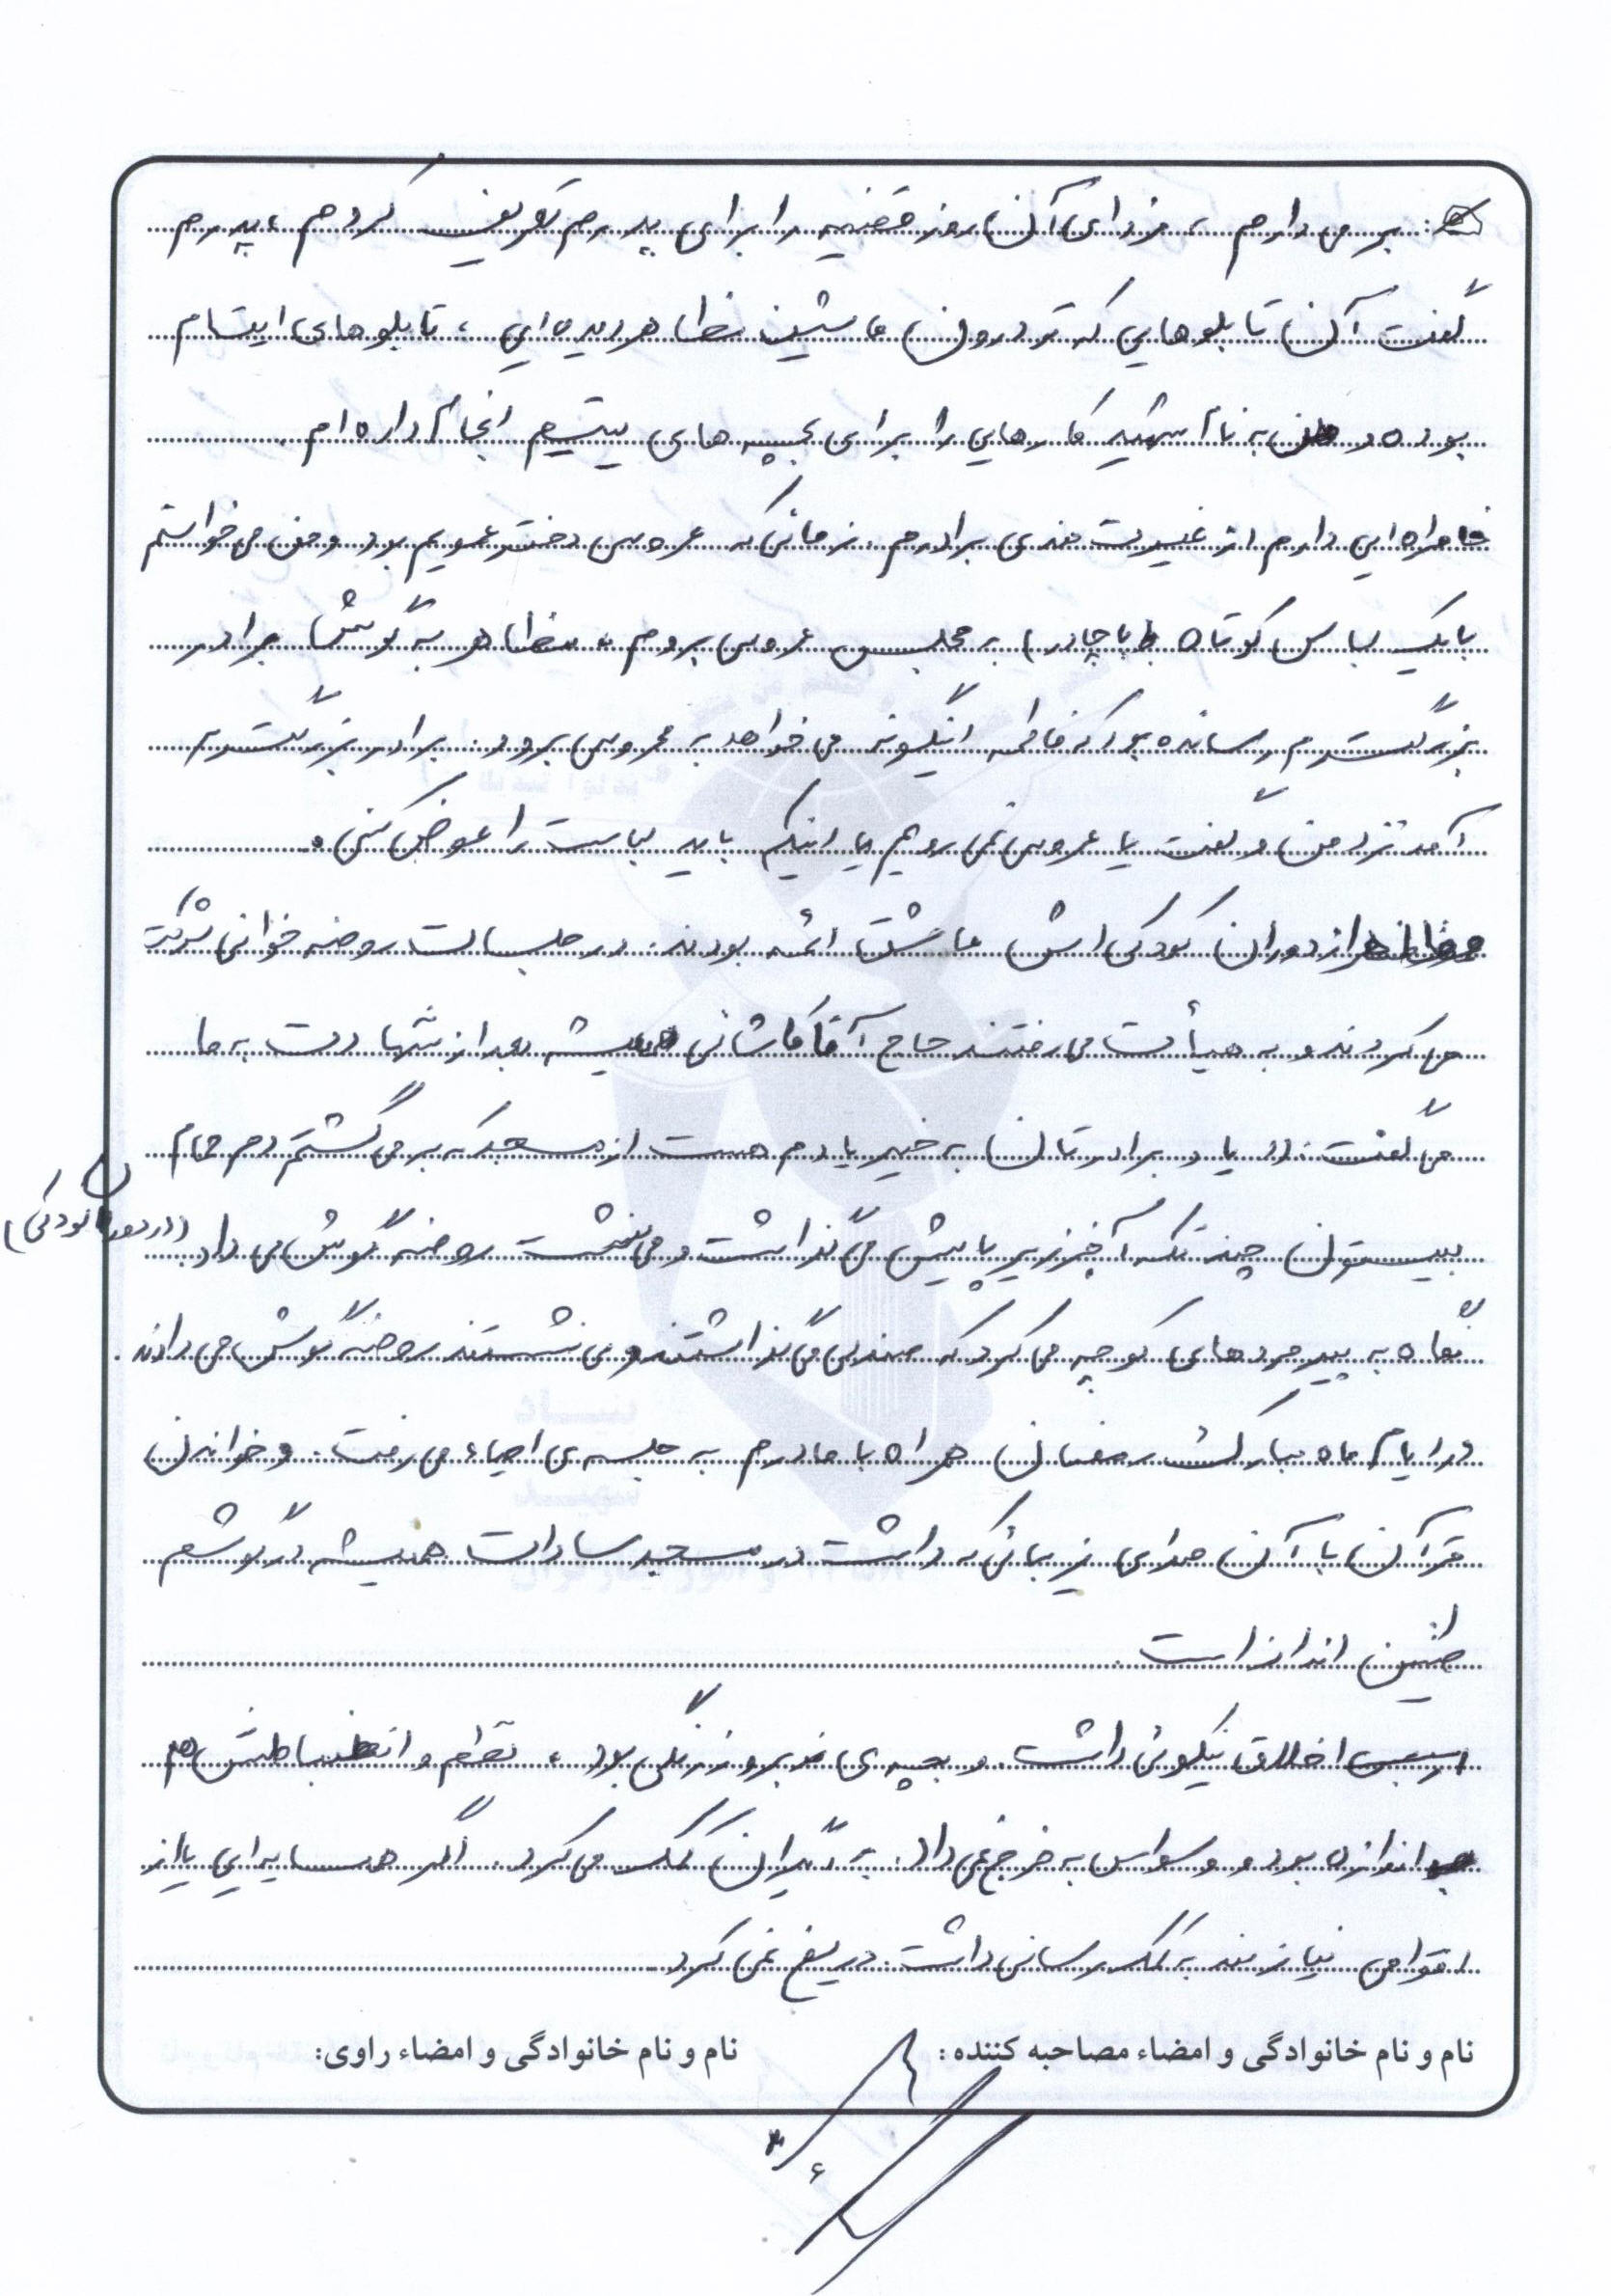 بر می دارم ، فردای آن روز قضیه را برای پدرم تعریف کردم ، پدرم
گفت آن تابلوهایی که تو درون ماشین مظاهر دیده ایی ، تابلوهای ایتام
بوده و من به نام شهید کارهایی را برای بچه های یتیم انجام داده ام .
خاطراه ایی دارم از غیرت مندی برادرم . زمانی که عروسی دختر عمویم بود و من می خواستم
با یک لباس کوتاه (با چادر) به مجلس عروسی بروم ، مظاهر به گوش برادر
بزرگترم رسانده بود که فاطمه اینگونه می خواهد به عروسی برود . برادر بزرگترم
آمد نزد من و گفت یا عروسی نمی رویم یا اینکه باید لباست را عوض کنی .
مظاهر از دوران کودکی اش عاشق ائمه بودند . در جلسات روضه خوانی شرکت
می کردند و به هیأت می رفتند حاج آقا کاشانی همیشه بعد از شهادت به ما
می گفت : یاد برادرتان به خیر یادم هست از مسجد که بر می گشتم دم حمام
بیستون چند تکه آجر زیر پایش می گذاشت و می نشست روضه گوش می داد . (در دوران کودکی)
نگاه به پیرمردهای کوچه می کرد که صندلی می گذاشتند و می نشستند روضه گوش می دادند .
در ایام ماه مبارک رمضان همراه با مادرم به جلسه ی احیاء می رفت . و خواندن
قرآن با آن صدای زیبائی که داشت در مسجد سادات همیشه در گوشم
طنین انداز است .
اخلاق نیکوئی داشت . و بچه ی زبر و زرنگی بود ، نظم و انضباطش هم
به اندازه بود و وسواس به خرج نمی داد . به دیگران کمک می کرد . اگر همسایه ایی یا از
اقوامی نیازمند به کمک رسانی داشت . دریغ نمی کرد .
نام و نام خانوادگی و امضاء مصاحبه کننده : نام و نام خانوادگی و امضاء راوی: